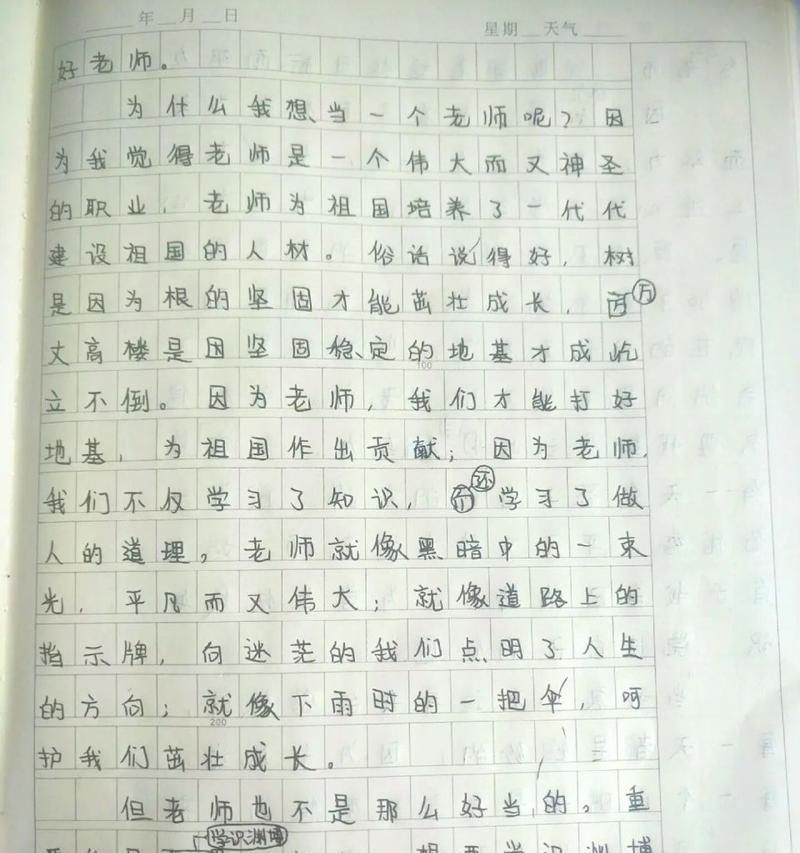 年 月 日 星期 天气
好老师。
为什么我想当一个老师呢？因
为我觉得老师是一个伟大而又神圣
的职业，老师为祖国培养了一代代
建设祖国的人材。俗话说得好，树
是因为根的坚固才能茁壮成长，万
丈高楼是因坚固稳定的地基才成屹
100
立不倒。因为老师，我们才能打好
地基，为祖国作出贡献；因为老师，
我们不仅学习了知识，还学习了做
人的道理。老师就像黑暗中的一束
光，平凡而又伟大；就像道路上的
指示牌，向迷茫的我们点明了人生
的方向；就像下雨时的一把伞，呵
200
护我们茁壮成长。
但老师也不是那么好当的。重
学识渊博
想要学识渊博